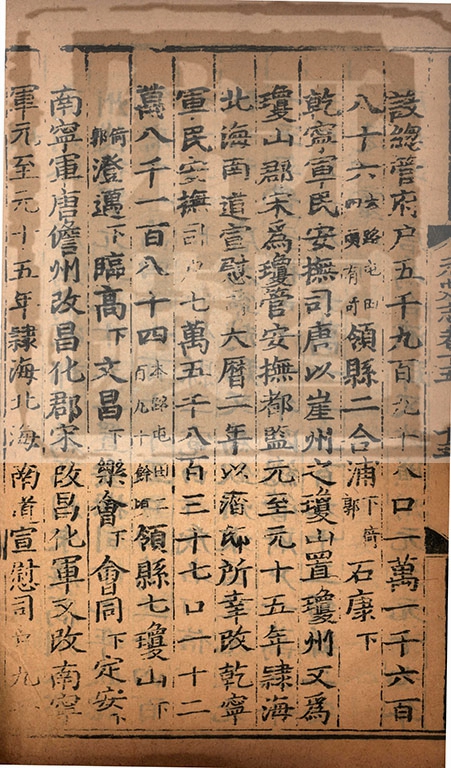 設總管府户五千九百九十八口一萬一千六百
八十六本路屯田四頃有奇領縣二合浦下倚郭石康下
乾寧軍民安撫司唐以崖州之瓊山置瓊州又爲
瓊山郡宋爲瓊管安撫都監元至元十五年隸海
北海南道宣慰司天曆二年以潛邸所幸改乾寧
軍民安撫司户七萬五千八百三十七口一十二
萬八千一百八十四本路屯田二百九十餘頃領縣七瓊山下
倚郭澄邁下臨高下文昌下樂會下會同下定安下
南寧軍唐儋州改昌化郡宋改昌化軍又改南寧
軍元至元十五年隸海北海南道宣慰司户九